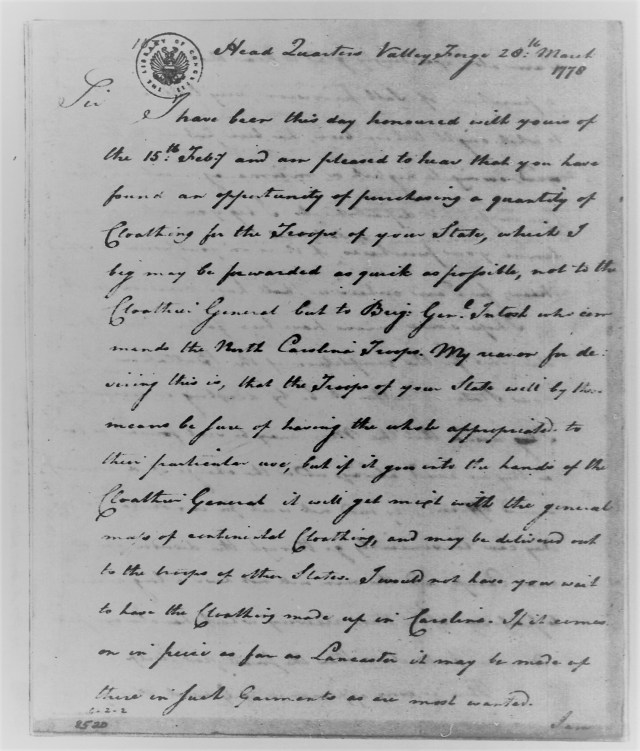 Head Quarters Valley Forge 28.th March
1778
THE LIBRARY OF CONGRESS
Sir
I have been this day honoured with yours of
the 15.th Feby and am pleased to hear that you have
found an opportunity of purchasing a quantity of
Cloathing for the Troops of your State, which I
beg may be forwarded as quick as possible, not to the
Cloathier General but to Brig: Genl. Intosh who com
mands the North Carolina Troops. My reason for de-
siring this is, that the Troops of your State will by this
means be sure of having the whole appropriated to
their particular use, but if it goes into the hands of the
Cloathier General it will get mixt with the general
mass of continental Cloathing, and may be delivered out
to the troops of other States. I would not have you wait
to have the Cloathing made up in Carolina. If it comes
on in peice as far as Lancaster it may be made up
there in such Garments as are most wanted.
2520
I am